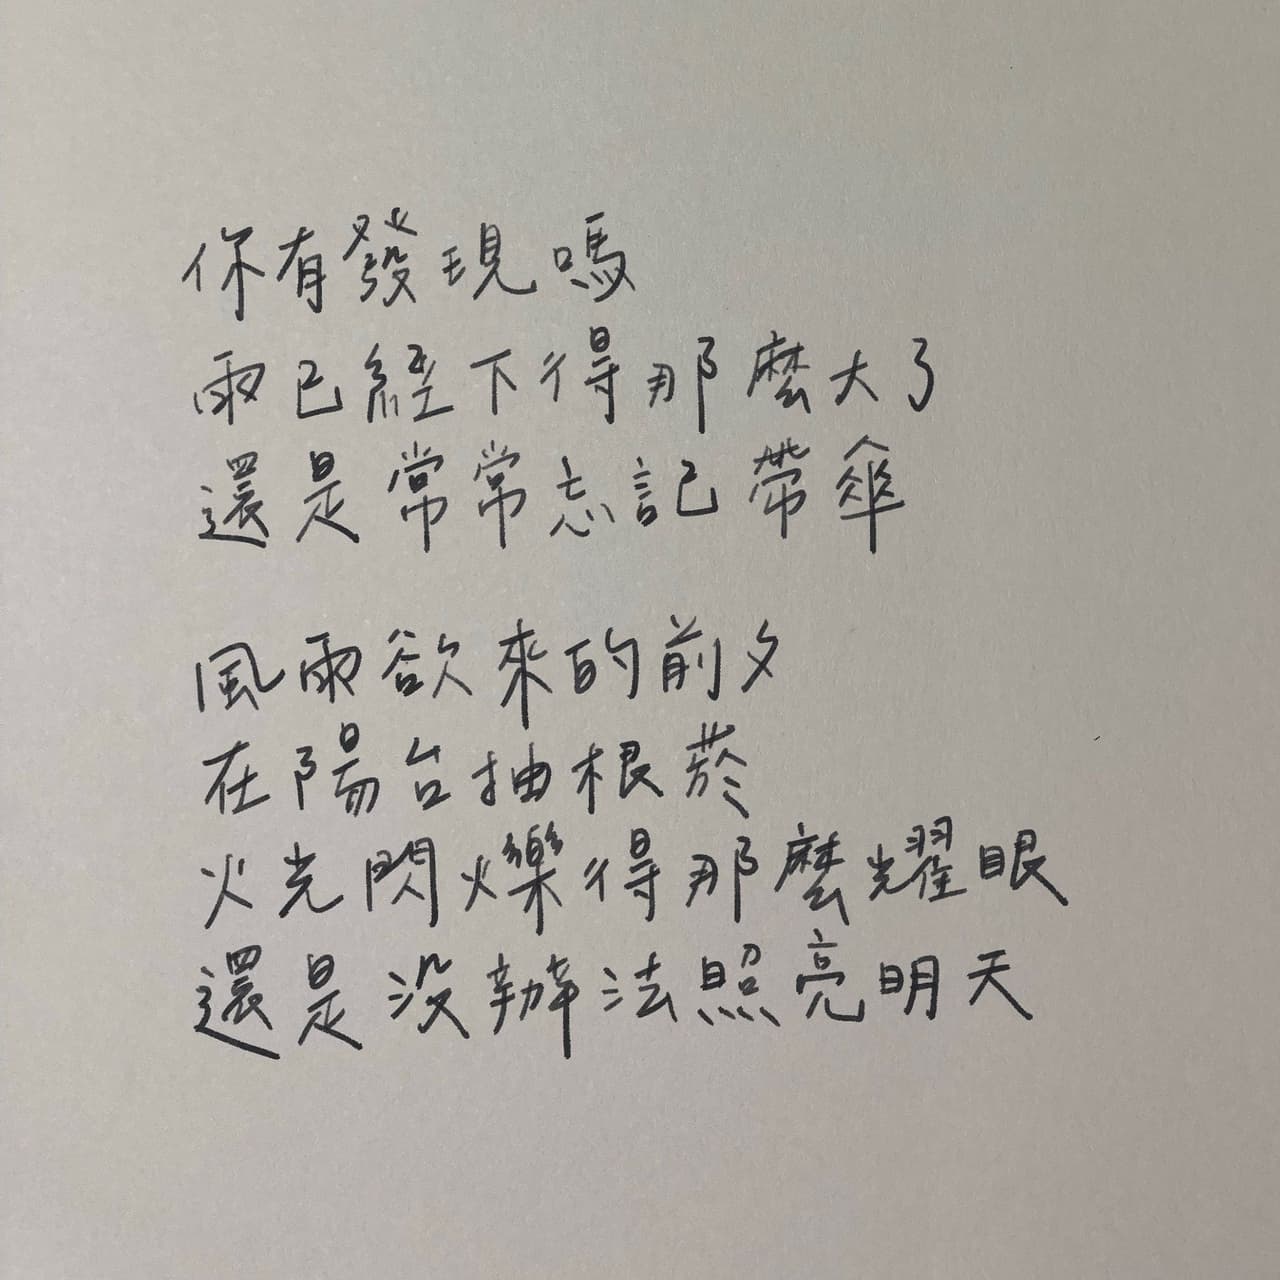 你有發現嗎
雨已經下得那麼大了
還是常常忘記帶傘
風雨欲來的前夕
在陽台抽根菸
火光閃爍得那麼耀眼
還是沒辦法照亮明天